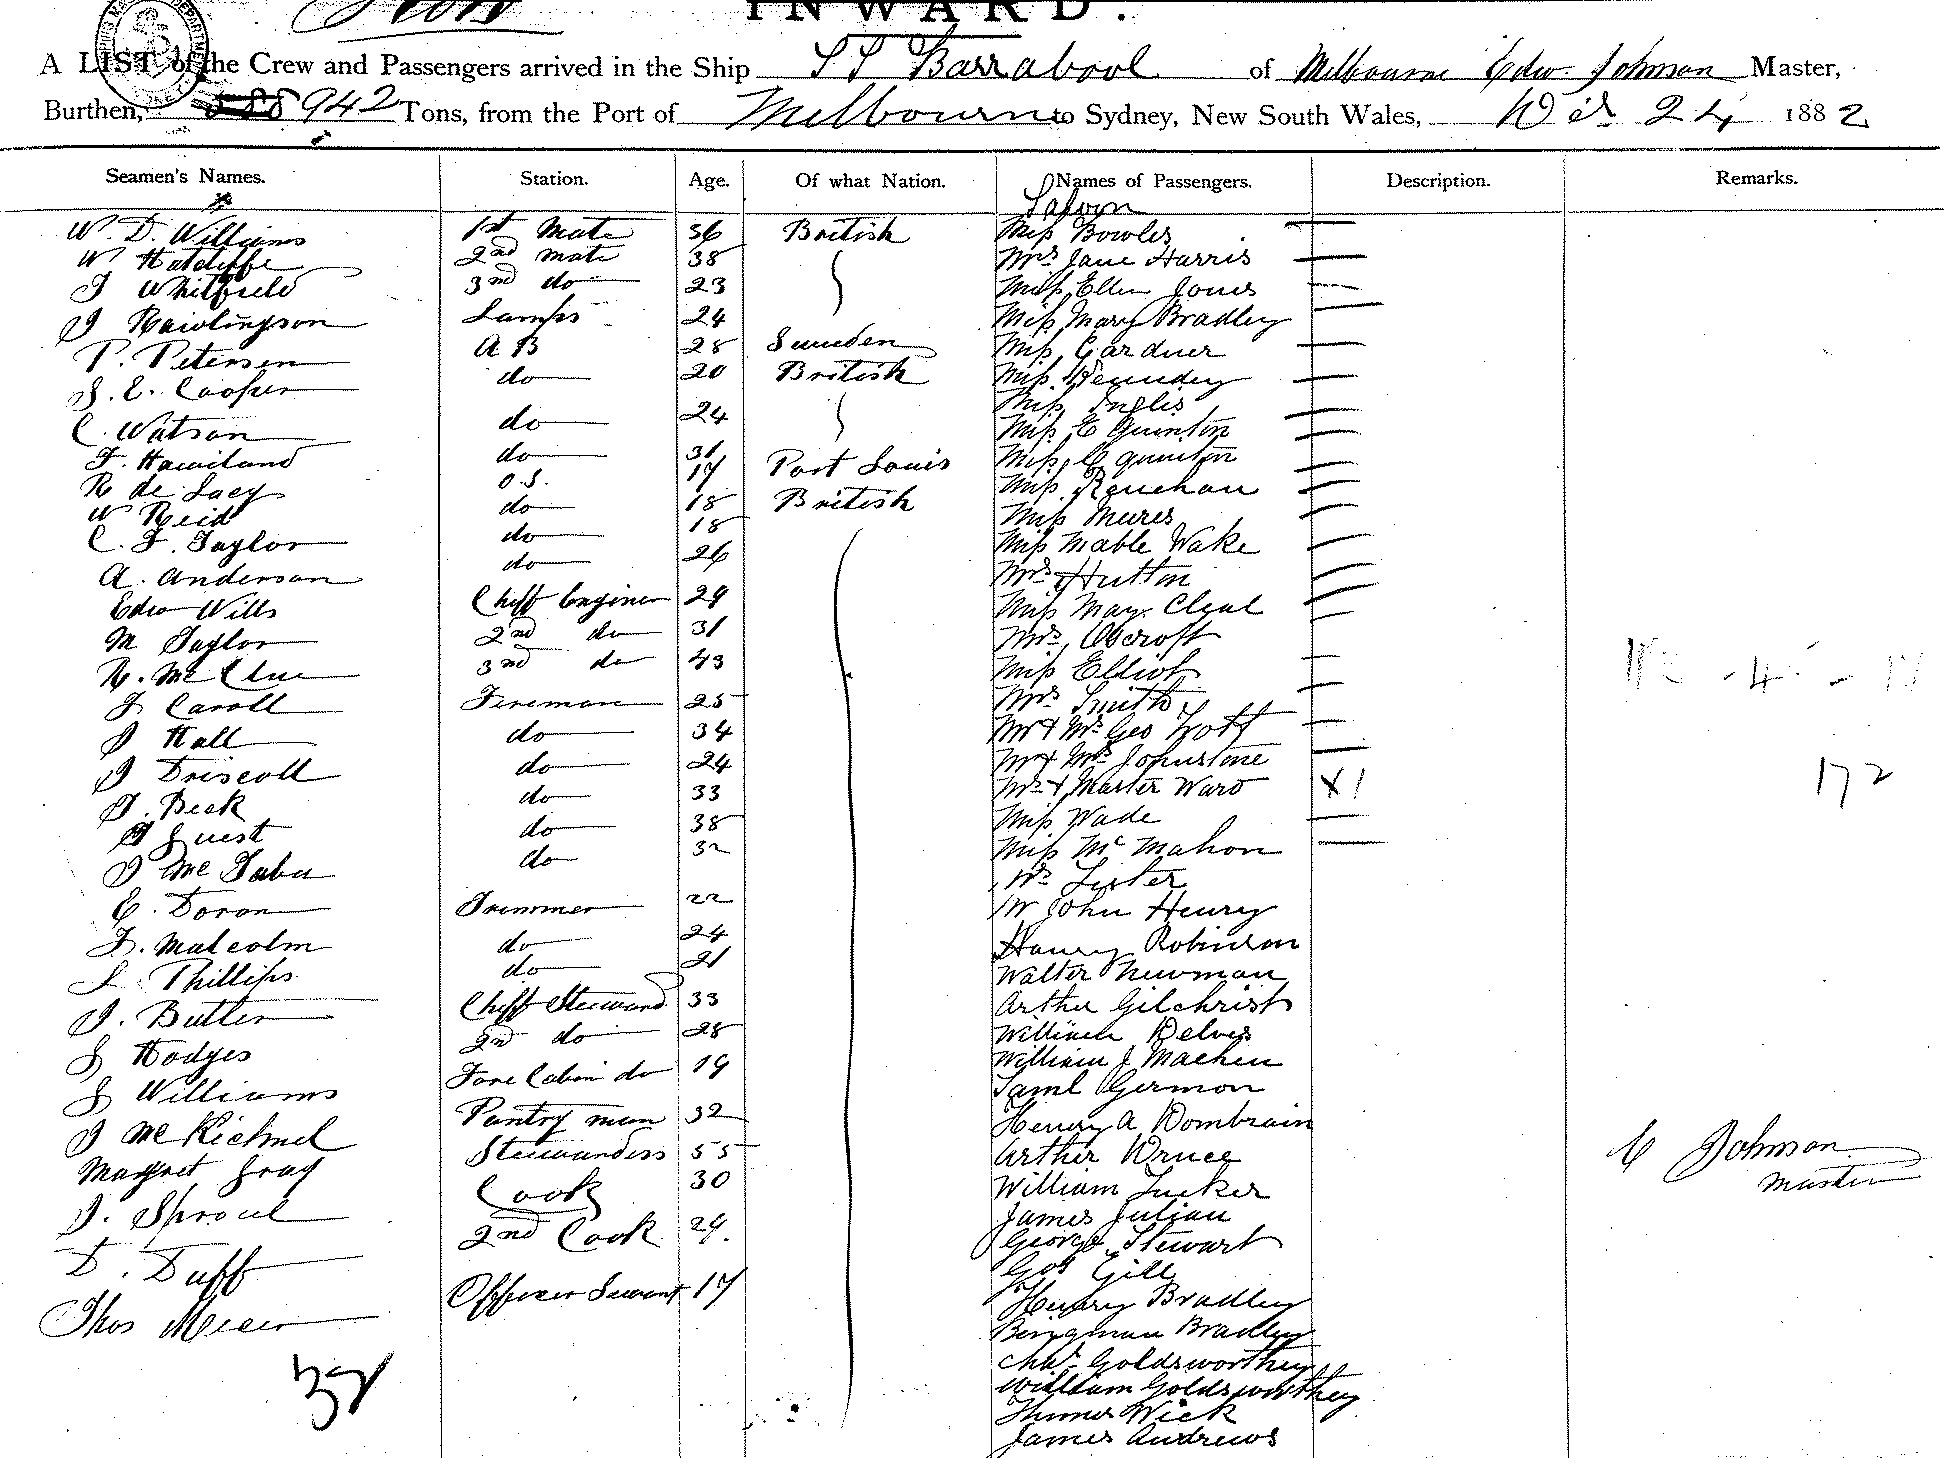 INWARD.
A LIST of the Crew and Passengers arrived in the Ship SS Barrabool of Melbourne Edw. Johnson Master,
Burthen, 942 Tons, from the Port of Melbourne to Sydney, New South Wales, 24 1882
Seamen's Names. Station. Age. Of what Nation. Names of Passengers. Description. Remarks.
Saloon
W. D. Williams 1st Mate 36 British Miss Bowles
W Hatcliffe 2nd mate 38 Mrs Jane Harris
J Whitfield 3rd do 23 Miss Ellen Jones
J Rawlingson Lamps 24 Miss Mary Bradley
P. Petersen A B 28 Sweeden Miss Gardner
S. E. Cooper do 20 British Miss Kennedy
Miss Inglis
C. Watson do 24 Miss E Quinton
F. Haviland do 31 Miss C Quinton
R de Lacy O.S. 17 Port Louis Miss Renehan
W Reid do 18 British Miss Mures
C. F. Taylor do 18 Miss Mable Wake
A. Anderson do 26 Mrs Hutton
Edw Wills Chiff Enginer 29 Miss May Clyal
M Taylor 2nd do 31 Mrs Ashcroft
R. McClue 3rd do 43 Miss Elliot
J Caroll Fireman 25 Mrs Smith
J Hall do 34 Mr & Mrs Geo Lott
J Driscoll do 24 Mr & Mrs Johnstone
J. Beck do 33 Mrs & Master Ward X 1 172
J Guest do 38 Miss Wade
J McCabe do 32 Miss McMahon
Mr Lister
C. Doran Trimmer 22 Mr John Henry
J. Malcolm do 24 Henry Robinson
L. Phillips do 21 Walter Newman
J. Butler Chiff Steward 33 Arthur Gilchrist
J Hodges 2nd do 28 William Delves
William J Machen
J Williams Fore Cabin do 19 Saml Germon
J McKichnel Pantry man 32 Henry A Dombrain
Margret Gray Stewardess 55 Arther Druce C Johnson
J. Sproul Cook 30 William Tucker Master
James Julian
D. Duff 2nd Cook 29. George Stewart
Geo Gill
Thos Officer Servant 17 Henry Bradley
Bradley
Chas Goldsworthy
37 William Goldsworthey
Wick
James Andrews